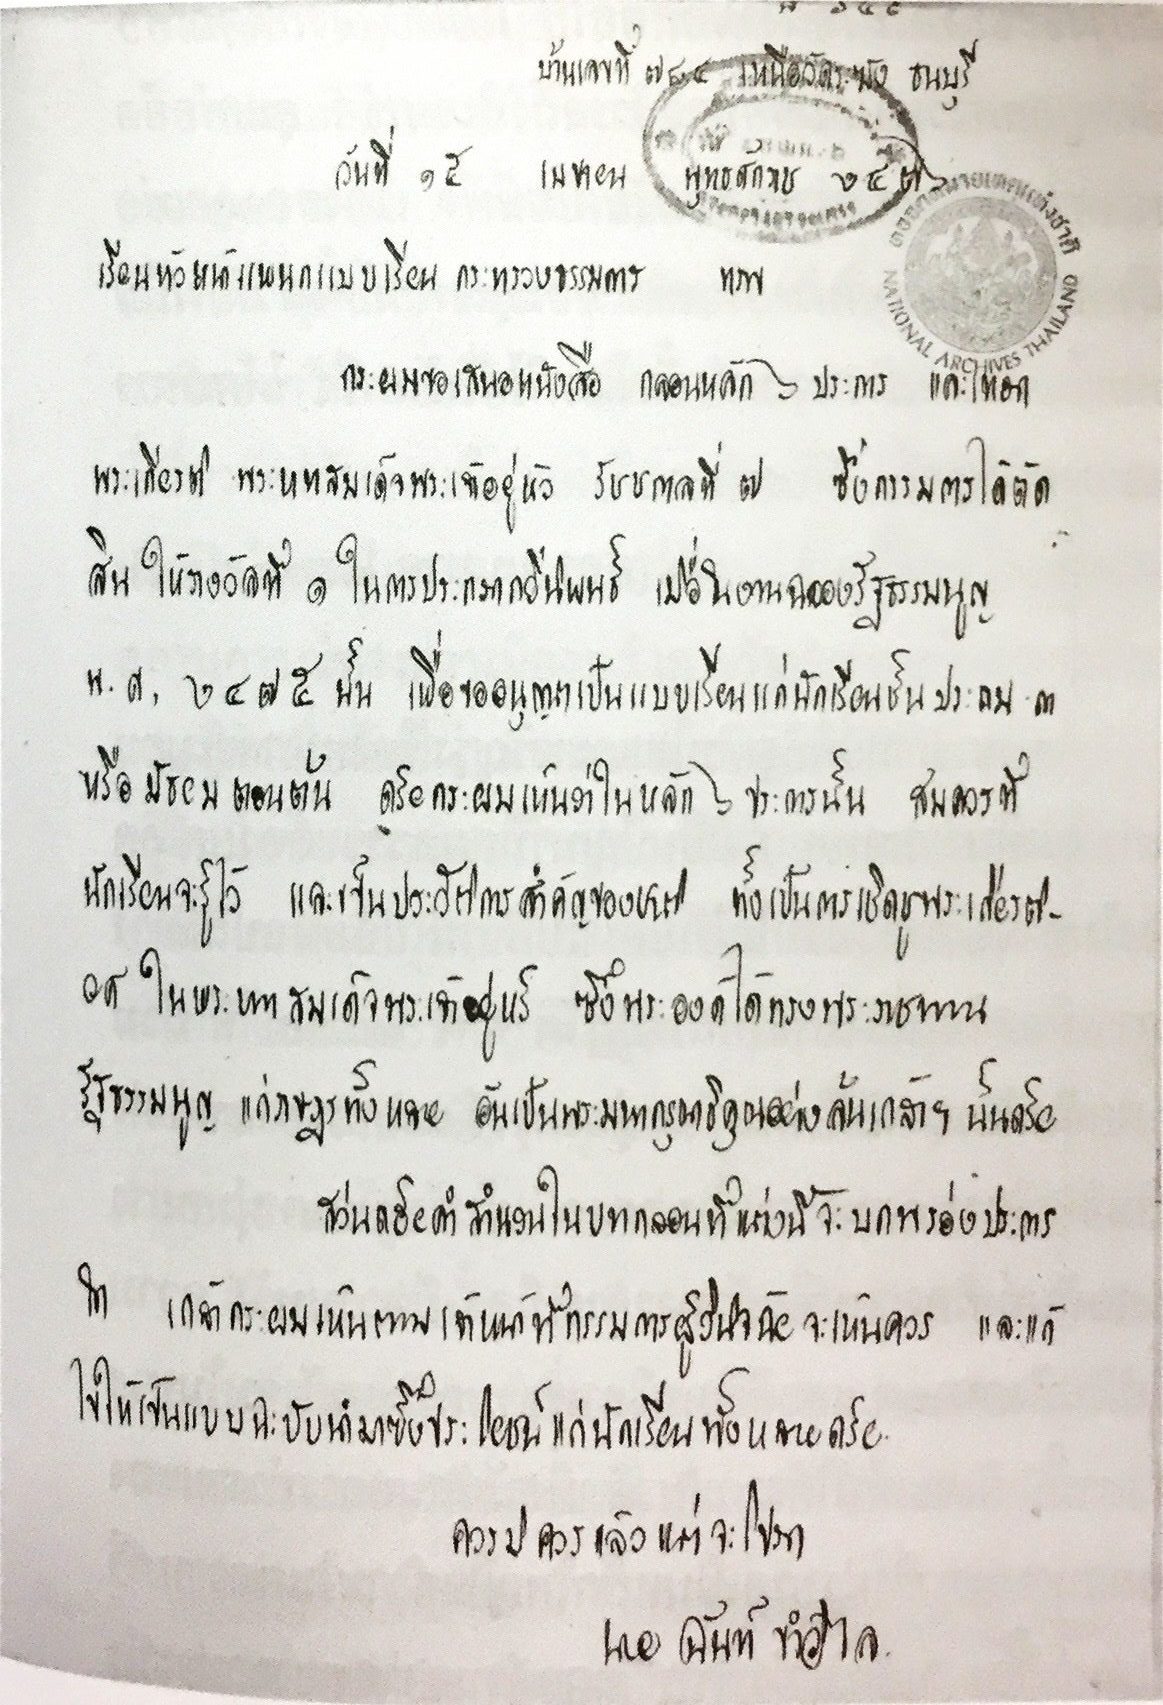 บ้านเลขที่ ๗๘๔ เหนือวัดระฆัง ธนบุรี
วันที่ ๑๕ เมษายน พุทธศักราช ๒๔๗๖
เรียนหัวหน้าแผนกแบบเรียน กระทรวงธรรมการ ทราบ
กระผมขอเสนอหนังสือ กลอนหลัก ๖ ประการ และเทอด
พระเกียรติ พระบาทสมเด็จพระเจ้าอยู่หัว รัชชกาลที่ ๗ ซึ่งกรรมการได้ตัด
สิน ให้รางวัลที่ ๑ ในการประกวดกวีนิพนธ์ เมื่อในงานฉลองรัฐธรรมนูญ
พ.ศ. ๒๔๗๕ นั้น เพื่อขออนุญาตเป็นแบบเรียนแก่นักเรียนชั้นประถม ๓
หรือมัธยมตอนต้น ด้วยกระผมเห็นว่าในหลัก ๖ ประการนั้น สมควรที่
นักเรียนจะรู้ไว้ และเป็นประวัติการสำคัญของชาติ ทั้งเป็นการเชิดชูพระเกียรติ-
ยศ ในพระบาทสมเด็จพระเจ้าอยู่หัว ซึ่งพระองค์ได้ทรงพระราชทาน
รัฐธรรมนูญ แก่ราษฎรทั้งหลาย อันเป็นพระมหากรุณาธิคุณอย่างล้นเกล้าฯ นั้นด้วย
ส่วนถ้อยคำสำนวนในบทกลอนที่แต่งนี้จะบกพร่องประการ
ใด เกล้ากระผมเห็นตามเจ้าหน้าที่กรรมการผู้วินิจฉัยจะเห็นควร และแก้
ไขให้เป็นแบบฉะบับนำมาซึ่งประโยชน์แก่นักเรียนทั้งหลายด้วย
ควรมิควรแล้วแต่จะโปรด
นาย ฉันท์ ขำวิไล
หอจดหมายเหตุแห่งชาติ
NATIONAL ARCHIVES THAILAND